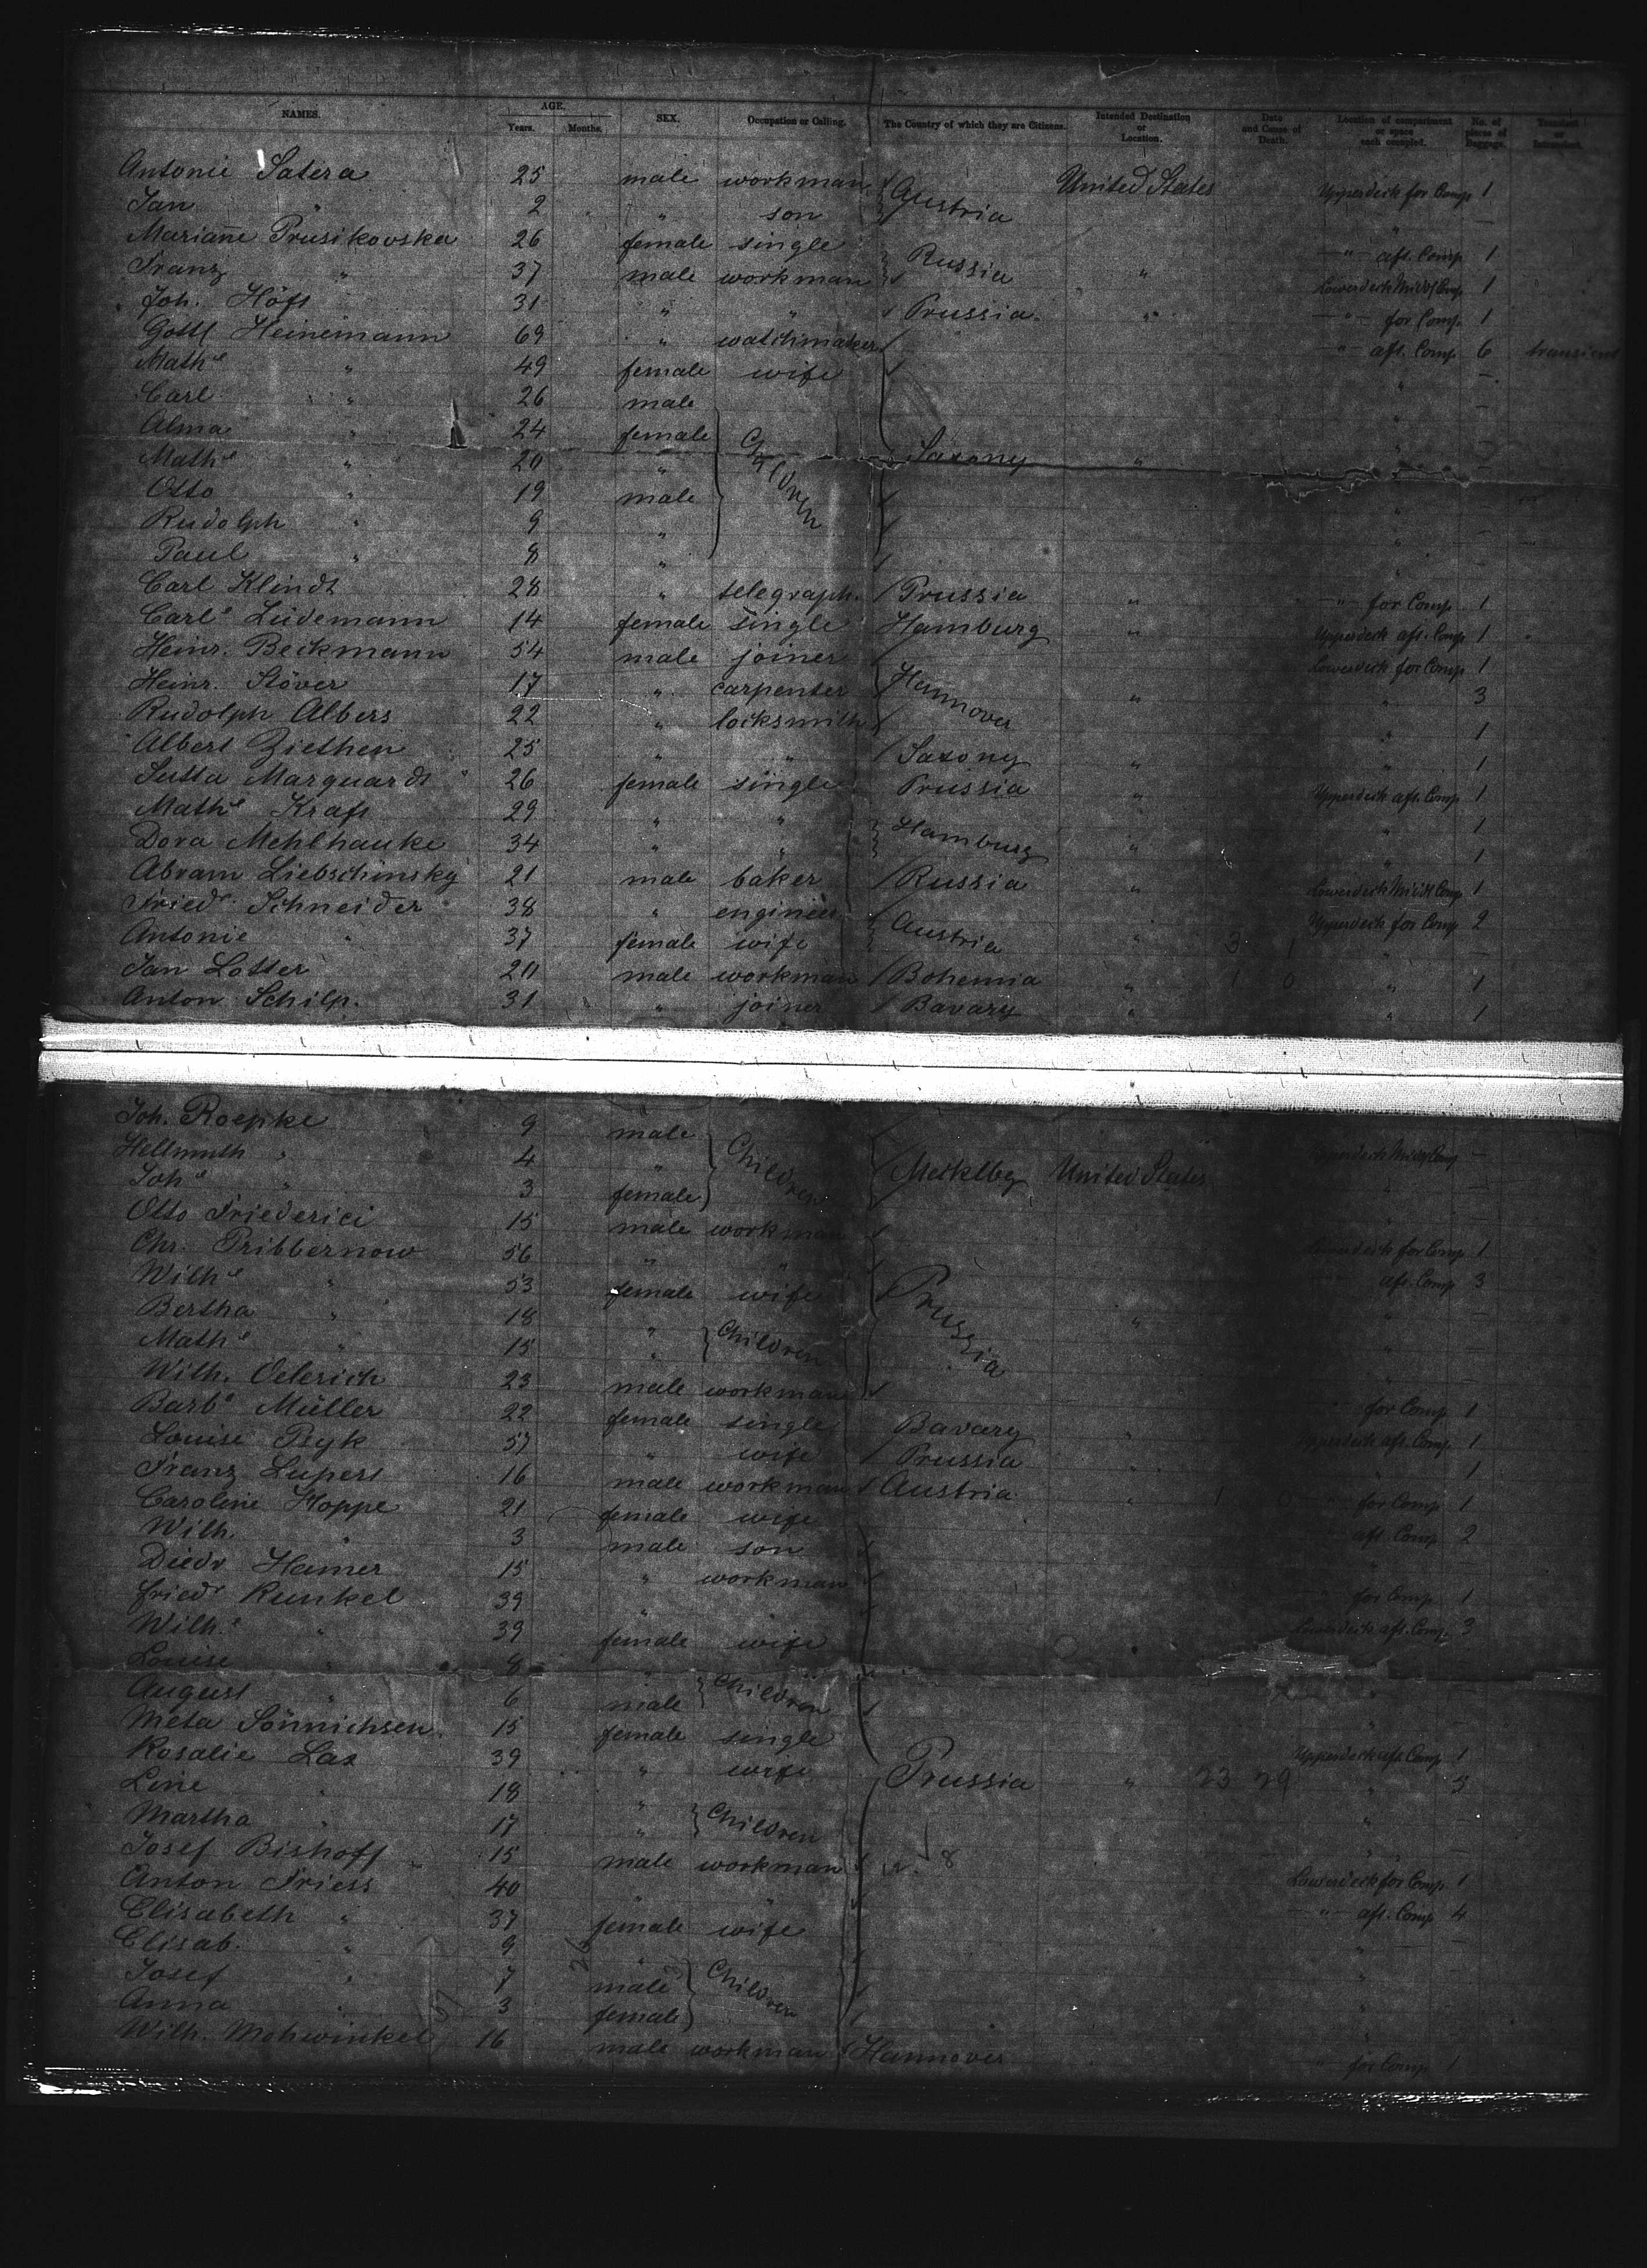 NAMES. AGE. Years. Months. SEX. Occupation or Calling. The Country of which they are Citizens. Intended Destination or Location. Date and Cause of Death. Location of compartment or space each occupied. No. of pieces of Baggage. Transient or
Antonie Satera 25 male workman Austria United States Upperdeck for Comp 1
Jan " 2 " son " -
Mariane Prusikovska 26 female single Russia " -"- aft. Comp 1
Franz " 37 male workman Lowerdeck Midd Comp 1
Joh. Höft 31 " " Prussia " -"- for Comp. 1
Gottl Heinemann 69 " watchmaker -"- aft. Comp 6 transient
Mathe " 49 female wife " -
Carl " 26 male " -
Alma " 24 female Children " -
Mathe " 20 " Saxony " -
Otto " 19 male " -
Rudolph " 9 " " -
Paul " 8 " " -
Carl Klindt 28 " telegraph. Prussia " -"- for Comp 1
Carle Lüdemann 14 female single Hamburg " Upperdeck aft. Comp 1
Heinr. Beckmann 54 male joiner Hannover Lowerdeck for Comp 1
Heinr. Stöver 17 " carpenter " " 3
Rudolph Albers 22 " locksmith " 1
Albert Ziethen 25 " " Saxony " " 1
Jutta Marquardt 26 female single Prussia " Upperdeck aft. Comp 1
Mathe Kraft 29 " " Hamburg " 1
Dora Mehlhauke 34 " " " " 1
Abram Liebschinsky 21 male baker Russia " Lowerdeck Midd Comp 1
Friedr Schneider 38 " engineer Austria Upperdeck for Comp 2
Antonie " 37 female wife " 3 1 " -
Jan Lotter 20 male workman Bohemia " 1 0 " 1
Anton Schilp. 31 " joiner Bavary " " 1
Joh. Roepke 9 male Children Midd Comp -
Hellmuth " 4 " Mecklbg United States " -
Johe " 3 female " -
Otto Friederici 15 male workman Lowerdeck for Comp 1
Chr. Pribbernow 56 " " aft. Comp 3
Wilhe " 53 female wife Prussia " -
Bertha " 18 " Children " " -
Mathe " 15 " " -
Wilh. Oelerich 23 male workman for Comp 1
Barba Müller 22 female single Bavary " Upperdeck aft. Comp 1
Louise Psyk 57 " wife Prussia " " 1
Franz Lupert 16 male workman Austria " 1 0 for Comp 1
Caroline Hoppe 21 female wife aft. Comp 2
Wilh. " 3 male son " -
Diedr Hamer 15 " workman " for Comp 1
Friedr Runkel 39 " " Lowerdeck aft. Comp. 3
Wilhe " 39 female wife
Louise " 8 " Children "
August " 6 male " -
Meta Sönnichsen 15 female single Upperdeck aft Comp 1
Rosalie Lax 39 " wife Prussia " 23 29 " 3
Line " 18 " Children " -
Martha " 17 " " -
Josef Bishoff 15 male workman Lowerdeck for Comp. 1
Anton Friess 40 " " -"- aft. Comp 4
Elisabeth " 37 female wife " -
Elisab. " 9 " Children " -
Josef " 7 male " -
Anna " 3 female " -
Wilh. Mohwinkel 16 male workman Hannover " for Comp 1